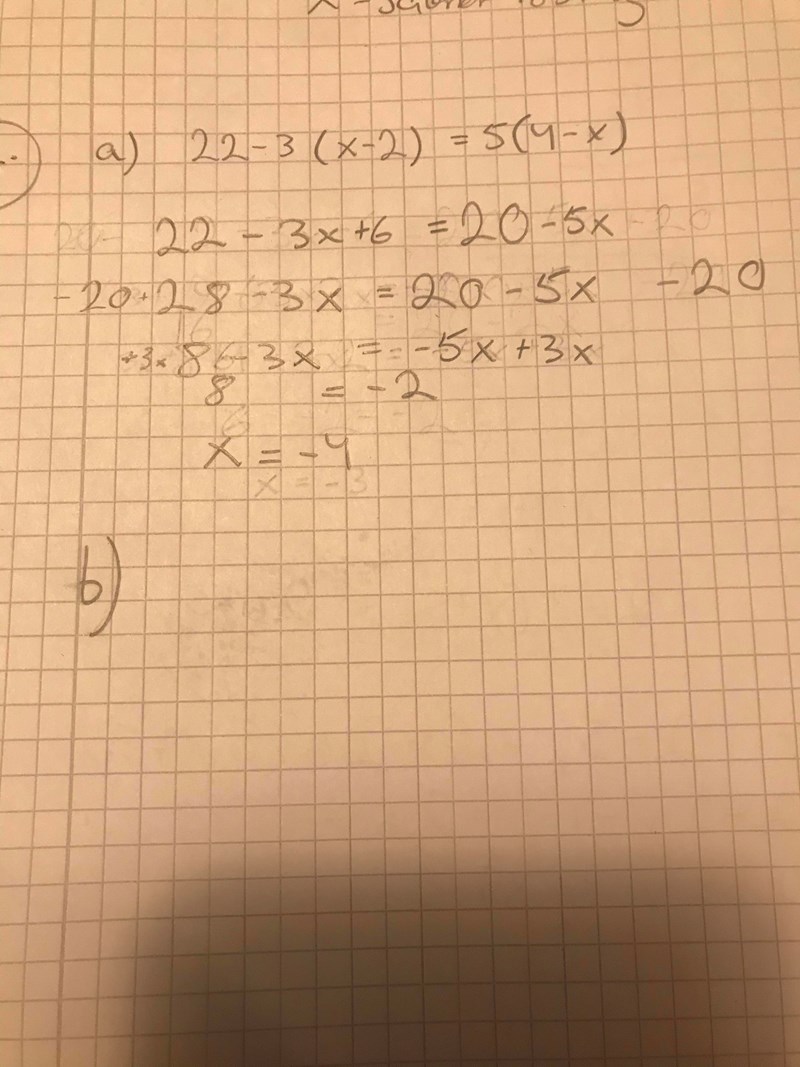 a) 22-3 (x-2) = 5(4-x)
22 - 3x+6 = 20-5x
-20+28-3x = 20-5x -20
+3x 8-3x = -5x+3x
8 = -2
x = -4
x = -3
b)